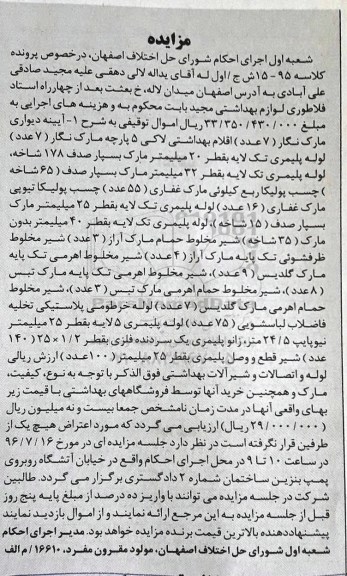 مزایده
شعبه اول اجرای احکام شورای حل اختلاف اصفهان، درخصوص پرونده
کلاسه ۹۵-۱۵ش ج/اول له آقای یداله لالی دهقی علیه مجید صادقی
علی آبادی به آدرس اصفهان میدان لاله، خ بعثت بعد از چهارراه استاد
فلاطوری لوازم بهداشتی مجید بابت محکوم به و هزینه های اجرایی به
مبلغ ۳۳/۳۵۰/۴۳۰/۰۰۰ ریال اموال توقیفی به شرح ۱-آیینه دیواری
مارک نگار (۷عدد) اقلام بهداشتی لاکی ۵ پارچه مارک نگار (۷عدد)
لوله پلیمری تک لایه بقطر ۲۰ میلیمتر مارک بسپار صدف ۱۷۸ شاخه،
لوله پلیمری تک لایه بقطر ۳۲ میلیمتر مارک بسپار صدف (۶۵شاخه
) چسب پولیکاربع کیلوئی مارک غفاری (۵۵عدد) چسب پولیکا تیوپی
مارک غفاری (۱۶عدد) لوله پلیمری تک لایه بقطر ۲۵ میلیمتر مارک
بسپار صدف (۱۵شاخه)، لوله پلیمری تک لایه بقطر ۴۰ میلیمتر بدون
مارک (۳۵شاخه) شیر مخلوط حمام مارک آراز (۳عدد) شیر مخلوط
ظرفشوئی تک پایه مارک آراز (۴عدد) شیر مخلوط اهرمی تک پایه
مارک گلدیس (۹عدد)، شیر مخلوط اهرمی تک پایه مارک تبس
(۸عدد)، شیر مخلوط حمام اهرمی مارک تبس (۳عدد)، شیر مخلوط
حمام اهرمی مارک گلدیس (۷عدد) لوله خرطومی پلاستیکی تخلیه
فاضلاب لباسشویی (۷۵عدد) لوله پلیمری ۵لایه بقطر ۲۵ میلیمتر
نیوپایپ ۲۴/۵ متر، زانو پلیمری یک سردنده فلزی بقطر ۱/۲×۲۵ (۱۴۰
عدد) شیر قطع و وصل پلیمری بقطر ۲۵ میلیمتر (۱۰۰عدد) ارزش ریالی
لوله و اتصالات و شیرآلات بهداشتی فوق الذکر با توجه به نوع، کیفیت،
مارک و همچنین خرید آنها توسط فروشگاههای بهداشتی با قیمت زیر
بهای واقعی آنها در مدت زمان نامشخص جمعا بیست و نه میلیون ریال
(۲۹/۰۰۰/۰۰۰ ریال) ارزیابی می گردد که مورد اعتراض هیچ یک از
طرفین قرار نگرفته است در نظر دارد جلسه مزایده ای در مورخ ۹۶/۷/۱۶
در ساعت ۱۰ تا ۹ در محل اجرای احکام واقع در خیابان آتشگاه روبروی
پمپ بنزین ساختمان شماره ۲ دادگستری برگزار می گردد. طالبین
شرکت در جلسه مزایده می توانند با واریز ده درصد از مبلغ پایه پنج روز
قبل از جلسه مزایده به این مرجع ارائه نمایند و از اموال بازدید نمایند
پیشنهاددهنده بالاترین قیمت برنده مزایده خواهد بود. مدیر اجرای احکام
شعبه اول شورای حل اختلاف اصفهان، مولود مقرون مفرد، ۱۶۶۱۰/ م الف